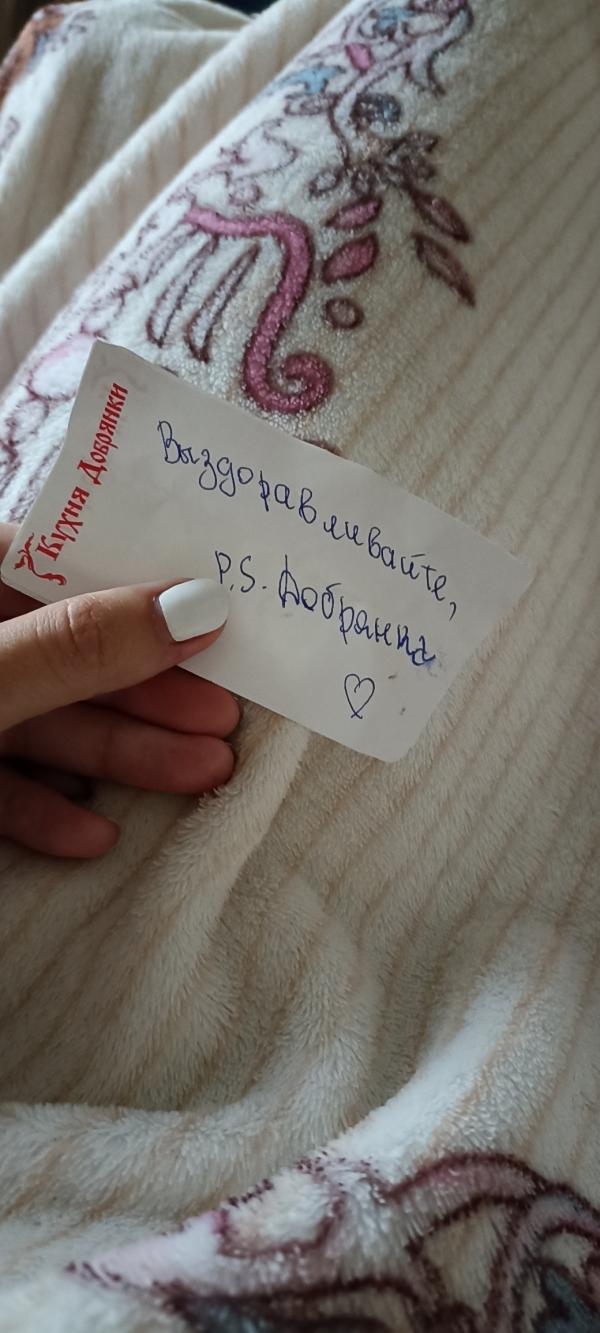 Кухня Добрянки
Выздоравливайте,
P.S. Добрянка